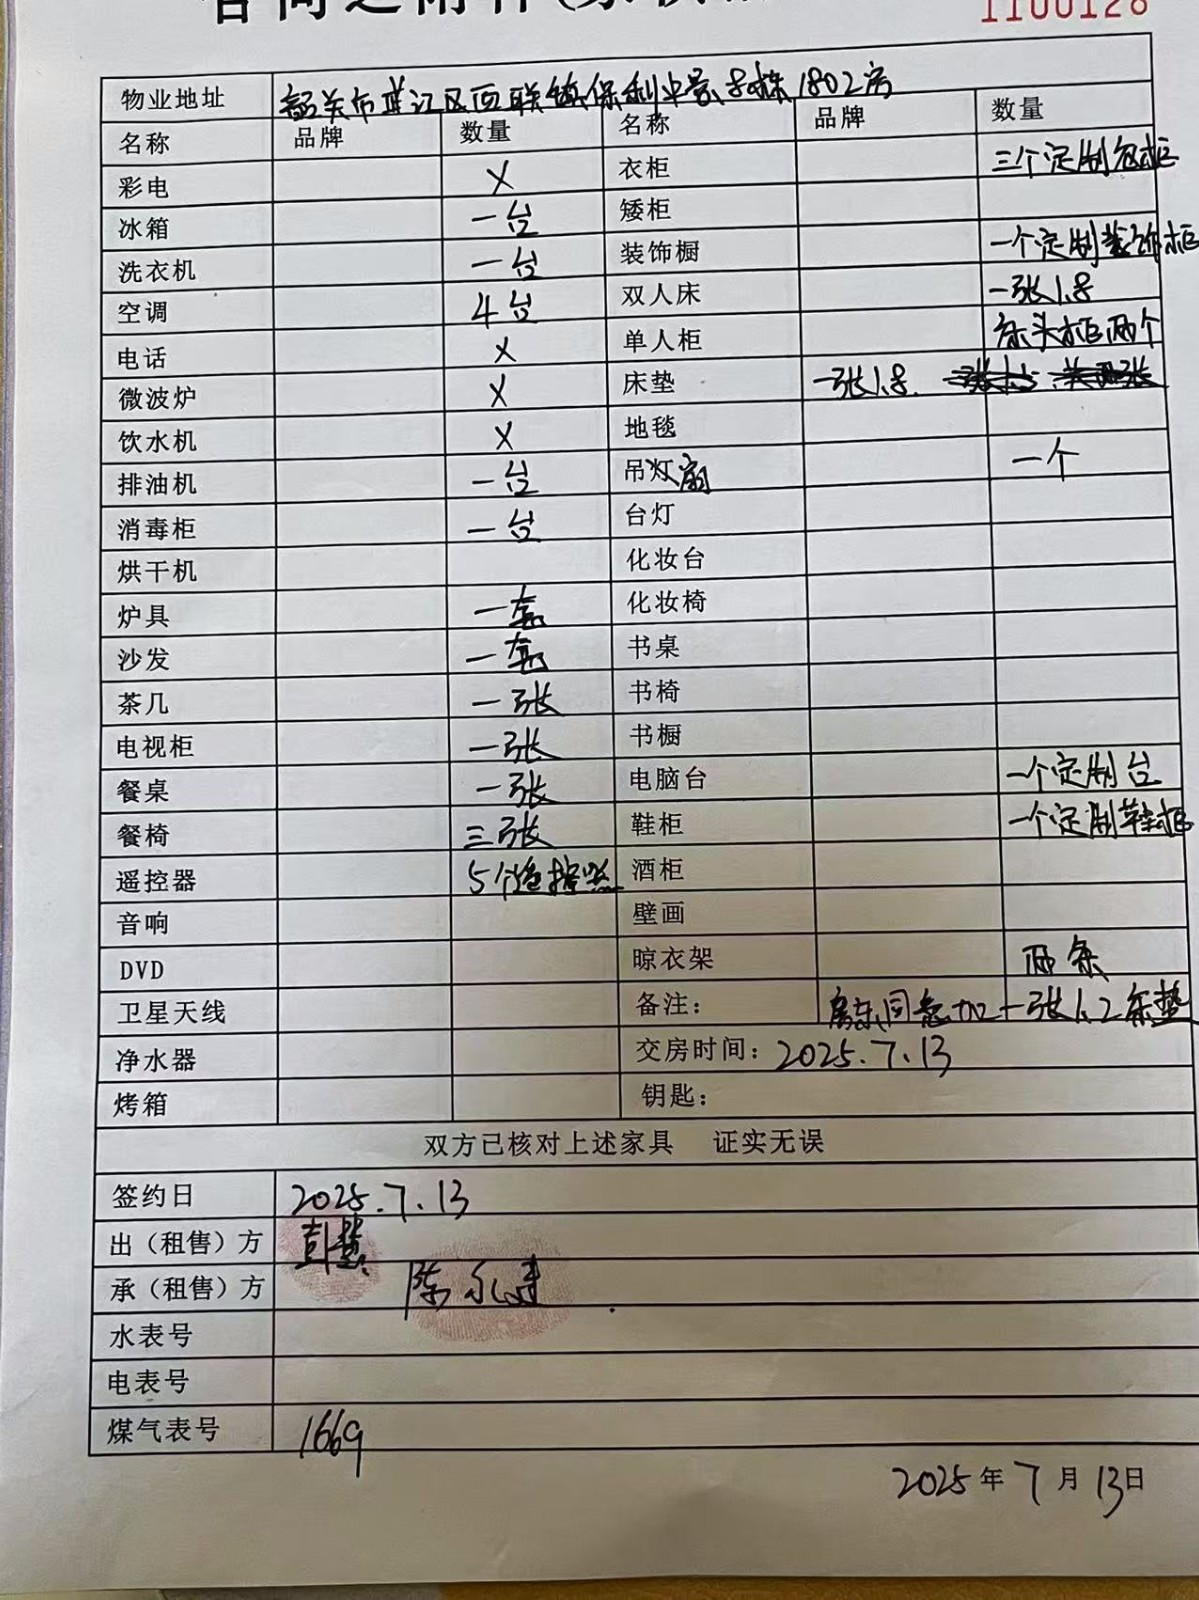 1100128
物业地址 韶关市浈江区西联镇保利中景8栋1802房
名称 品牌 数量 名称 品牌 数量
彩电 X 衣柜 三个定制衣柜
冰箱 一台 矮柜
洗衣机 一台 装饰橱 一个定制装饰柜
空调 4台 双人床 一张1.8
电话 X 单人柜 床头柜两个
微波炉 X 床垫 一张1.8.
饮水机 X 地毯
排油机 一台 吊灯扇 一个
消毒柜 一台 台灯
烘干机 化妆台
炉具 一套 化妆椅
沙发 一套 书桌
茶几 一张 书椅
电视柜 一张 书橱
餐桌 一张 电脑台 一个定制台
餐椅 三张 鞋柜 一个定制鞋柜
遥控器 5个遥控器 酒柜
音响 壁画
DVD 晾衣架 两条
卫星天线 备注: 房东同意加一张1.2床垫
净水器 交房时间: 2025.7.13
烤箱 钥匙:
双方已核对上述家具 证实无误
签约日 2025.7.13
出（租售）方 彭慧
承（租售）方 陈
水表号
电表号
煤气表号 1669
2025年7月13日